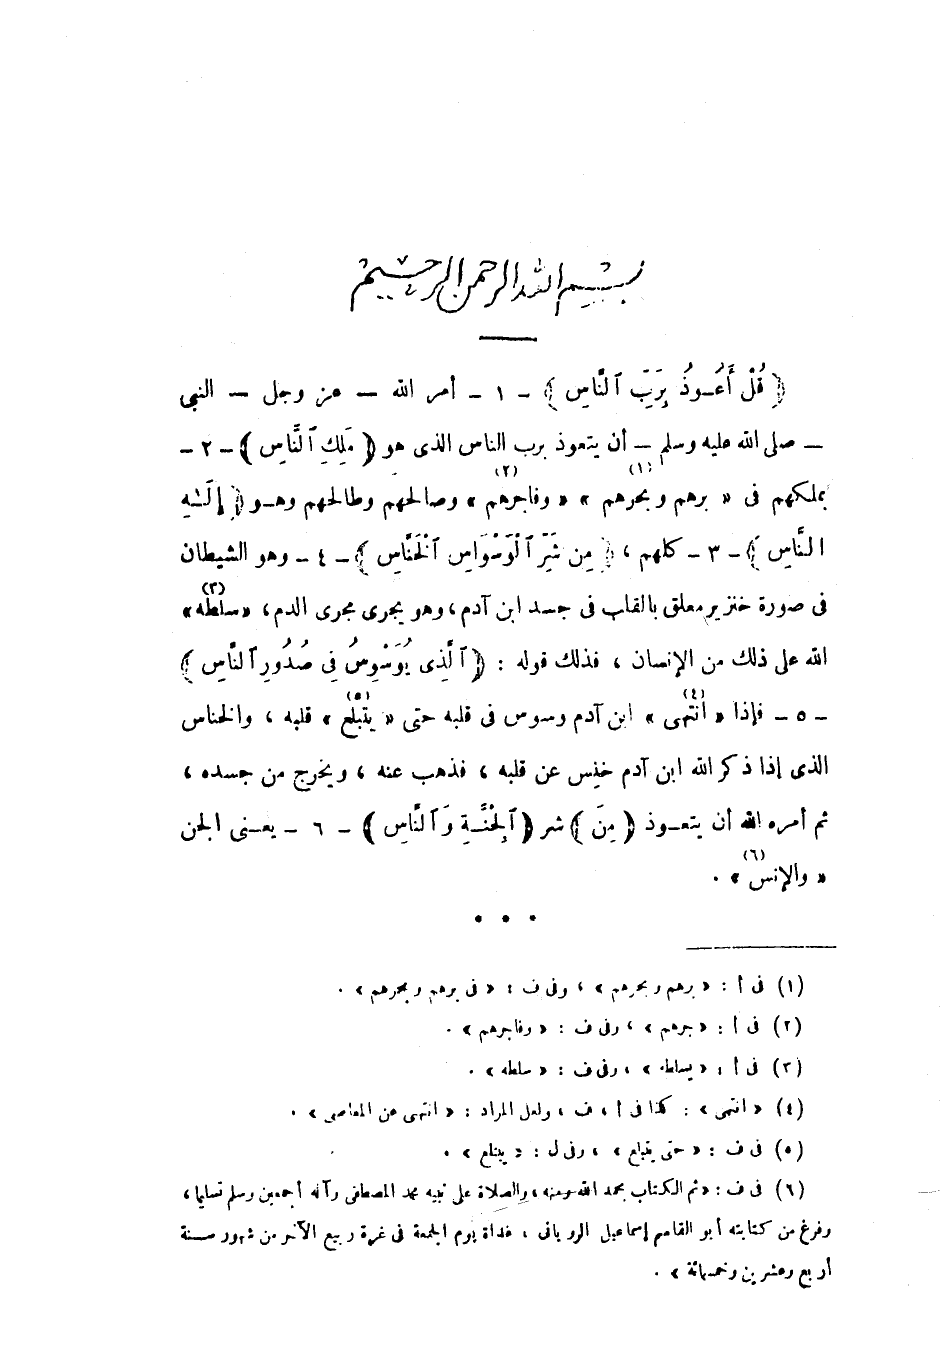 بسم الله الرحمن الرحيم
﴿ قُلْ أَعُـوذُ بِرَبِّ ٱلنَّاسِ ﴾ - ١ - أمر الله — عز وجل — النبى
— صلى الله عليه وسلم — أن يتعوذ برب الناس الذى هو ﴿ مَلِكِ ٱلنَّاسِ ﴾ - ٢ -
يملكهم فى « برهم وبحرهم (١) » « وفاجرهم (٢) » وصالحهم وطالحهم وهـو ﴿ إِلَـٰهِ
ٱلنَّاسِ ﴾ - ٣ - كلهم ، ﴿ مِن شَرِّ ٱلْوَسْوَاسِ ٱلْخَنَّاسِ ﴾ - ٤ - وهو الشيطان
فى صورة خنزير معلق بالقلب فى جسد ابن آدم ، وهو يجرى مجرى الدم ، « سلطه (٣) »
الله على ذلك من الإنسان ، فذلك قوله : ﴿ ٱلَّذِى يُوَسْوِسُ فِى صُدُورِ ٱلنَّاسِ ﴾
- ٥ - فإذا « انتهى (٤) » ابن آدم وسوس فى قلبه حتى « يتبلع (٥) » قلبه ، والخناس
الذى إذا ذكر الله ابن آدم خنس عن قلبه ، فذهب عنه ، ويخرج من جسده ،
ثم أمره الله أن يتعـوذ ﴿ مِنَ ﴾ شر ﴿ ٱلْجِنَّـةِ وَٱلنَّاسِ ﴾ - ٦ - يعـنى الجن
« والإنس (٦) » .
• • •
(١) فى أ : « برهم وبحرهم » ، وفى ف : « فى برهم وبحرهم » .
(٢) فى أ : « جرهم » ، وفى ف : « وفاجرهم » .
(٣) فى أ : « يسلطه » ، وفى ف : « سلطه » .
(٤) « انتهى » : كذا فى أ ، ف ، ولعل المراد : « انتهى عن المعاصى » .
(٥) فى ف : « حتى يتبلع » ، وفى ل : « يبتلع » .
(٦) فى ف : « تم الكتاب بحمد الله ومنه ، والصلاة على نبيه محمد المصطفى وآله أجمعين وسلم تسليما ،
وفرغ من كتابته أبو القاسم إسماعيل الرويانى ، غداة يوم الجمعة فى غرة ربيع الآخر من شهور سـنة
أربع وعشرين وخمسمائة » .